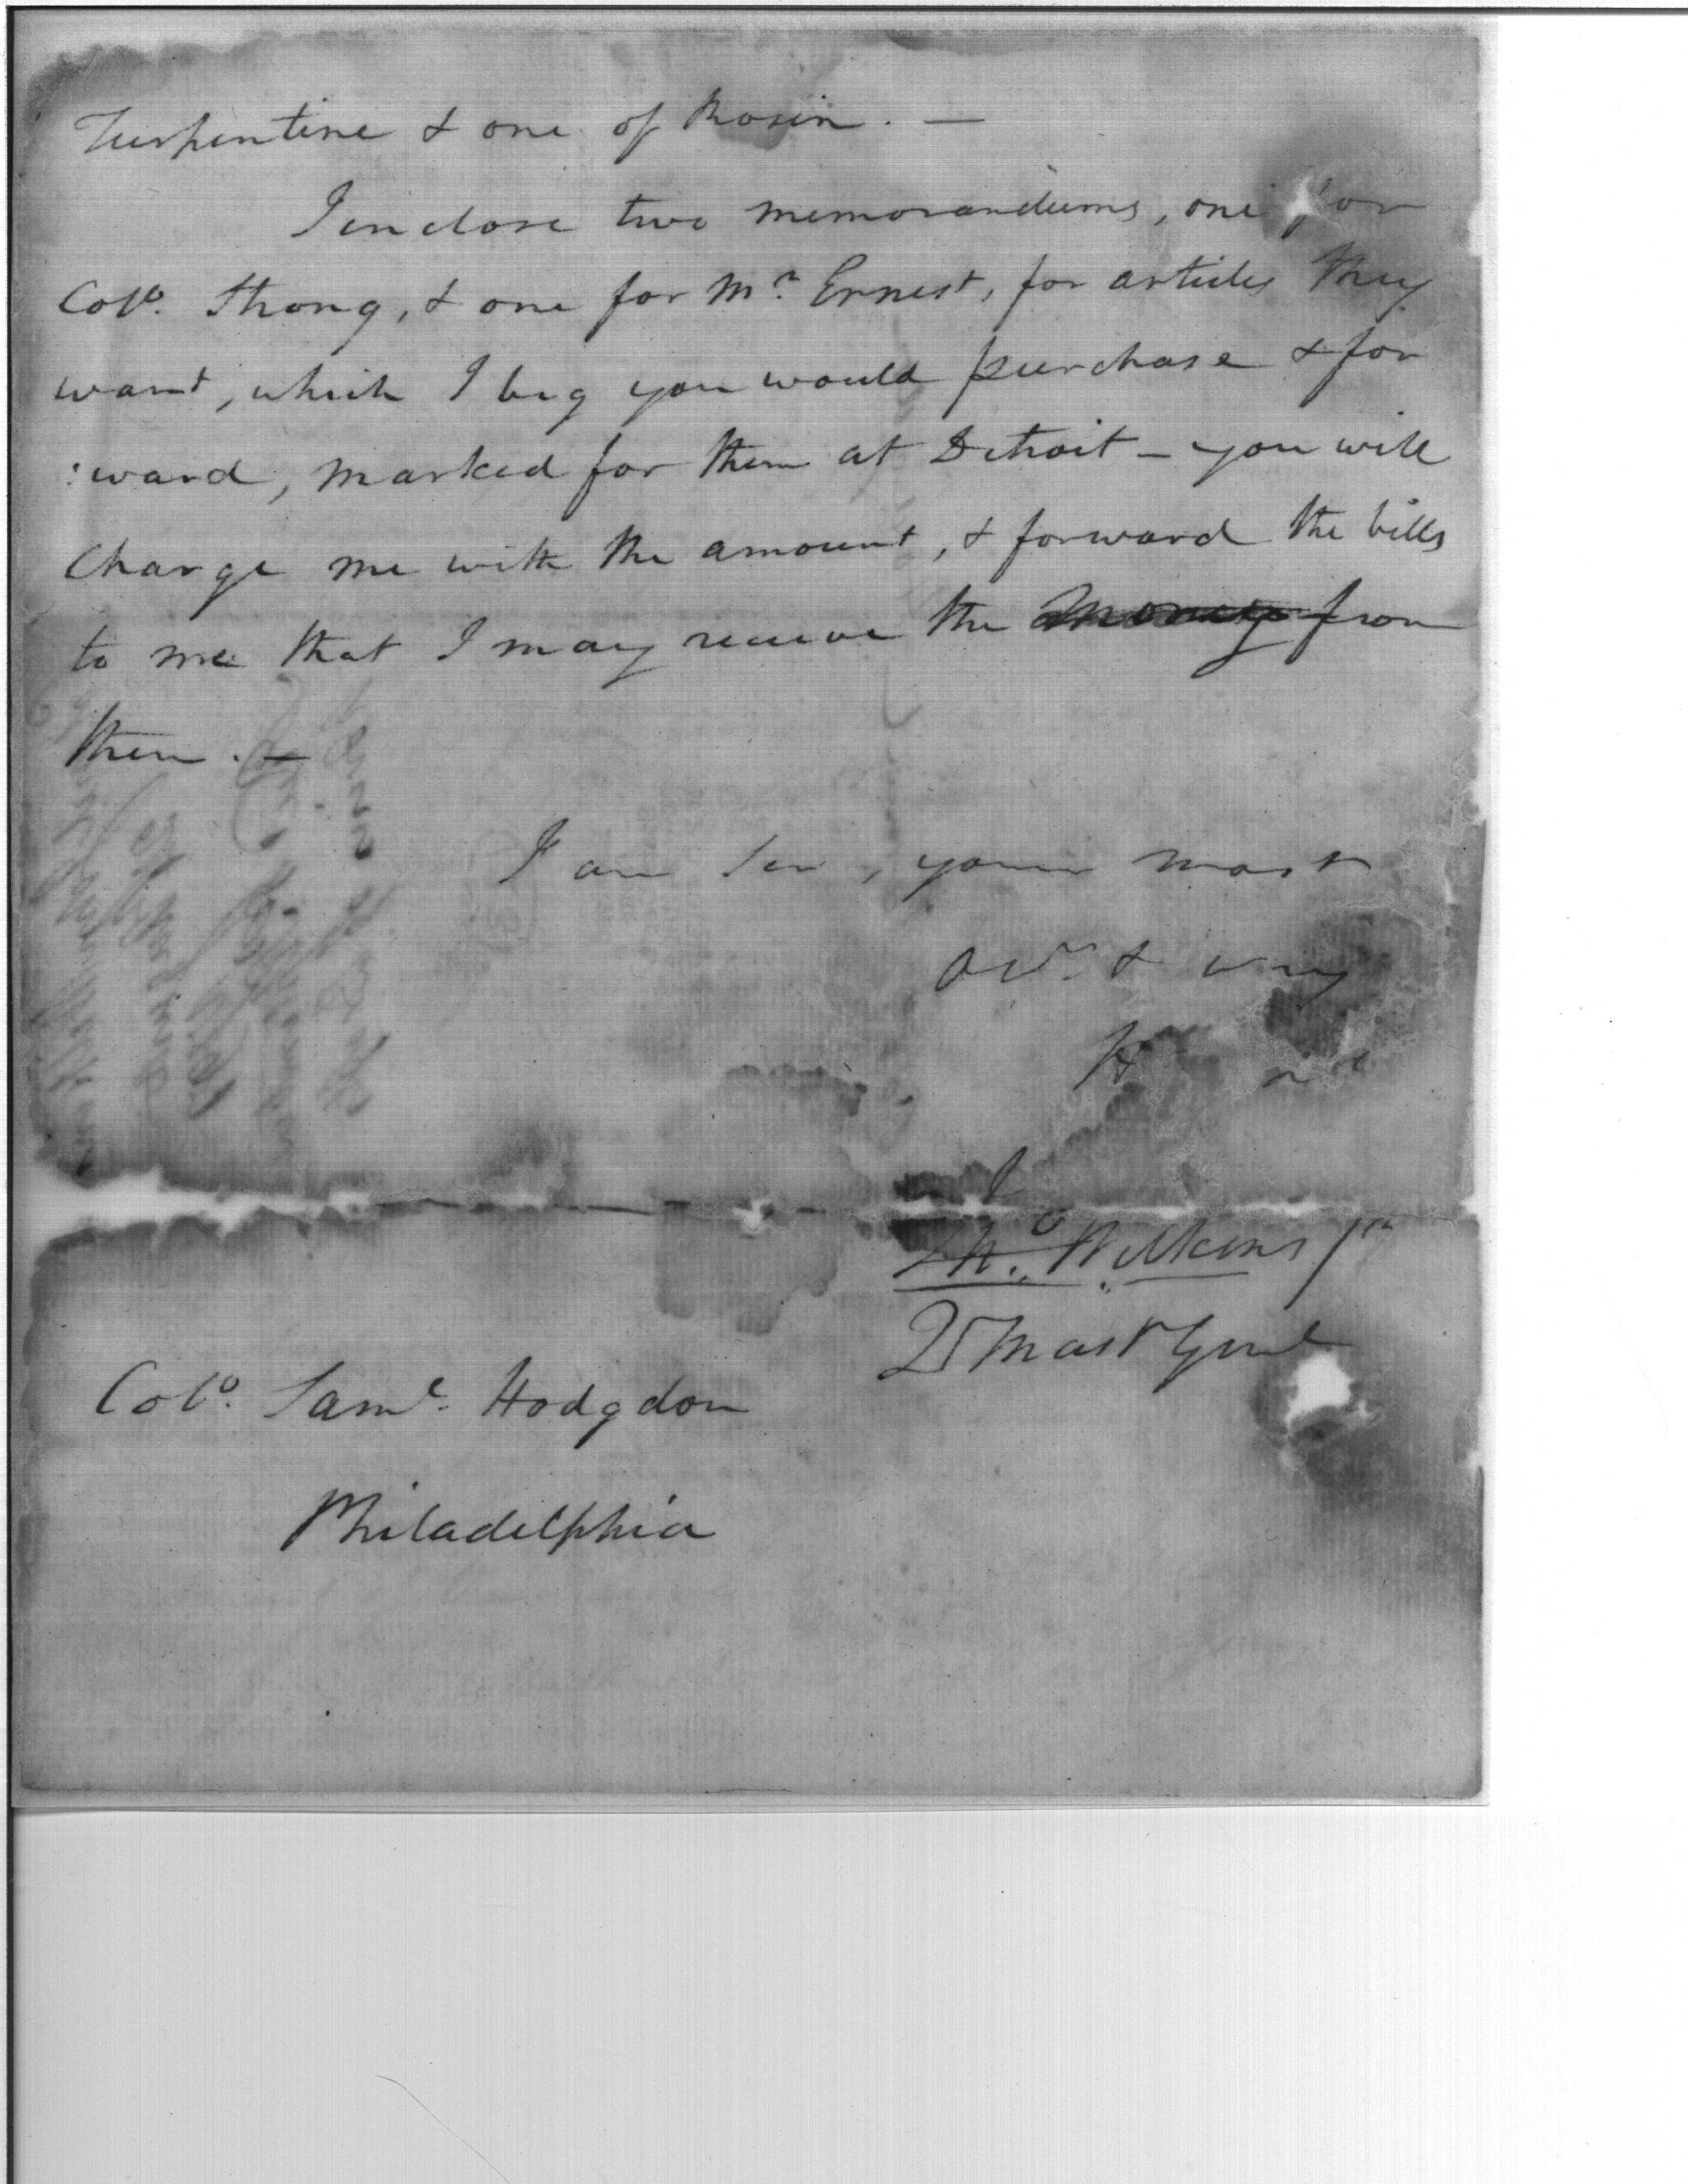 Turpentine & one of Rosin. —
I enclose two memorandums, one for
Colo. Strong, & one for Mr. Ernest, for articles they
want, which I beg you would purchase & for
:ward, marked for them at Detroit – you will
Charge me with the amount, & forward the bills
to me that I may receive the money from
them. —
I am Sir, your most
Obt. & very
Jno. Wilkins Jr
QrMastr Genl
Colo. Saml. Hodgdon
Philadelphia